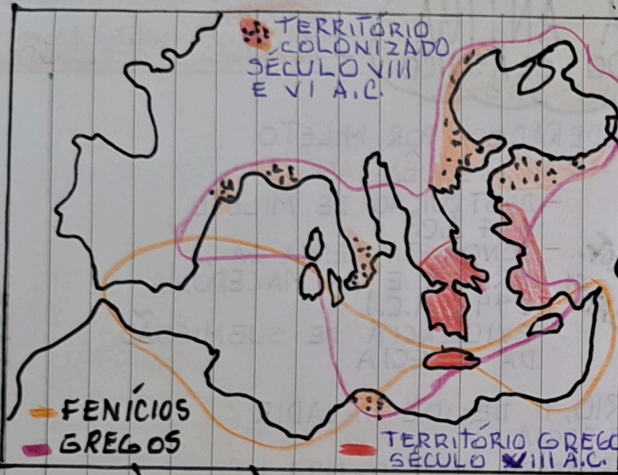 TERRITÓRIO
COLONIZADO
SÉCULO VIII
E VI A.C.
FENÍCIOS
GREGOS
TERRITÓRIO GREGO
SÉCULO VIII A.C.